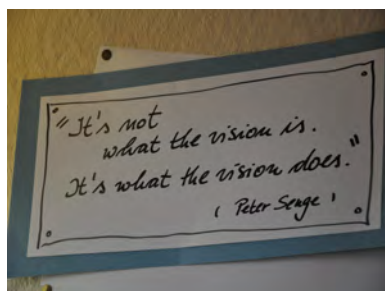 "It's not
what the vision is.
It's what the vision does."
( Peter Senge )